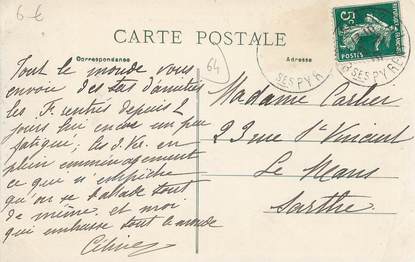 6 €
CARTE POSTALE
Correspondance
Adresse
64
5c
POSTES
SES PYR
SES PYRE
Tout le monde vous
envoie des tas d'amitiés
les F. rentrés depuis 2
jours un peu
fatigué; les en
plein emménagement
ce qui n'empêche
qu'on se ballade tout
de même, et moi
qui embrasse tout le monde
Céline
Madame Carlier
29 rue St Vincent
Le Mans
Sarthe